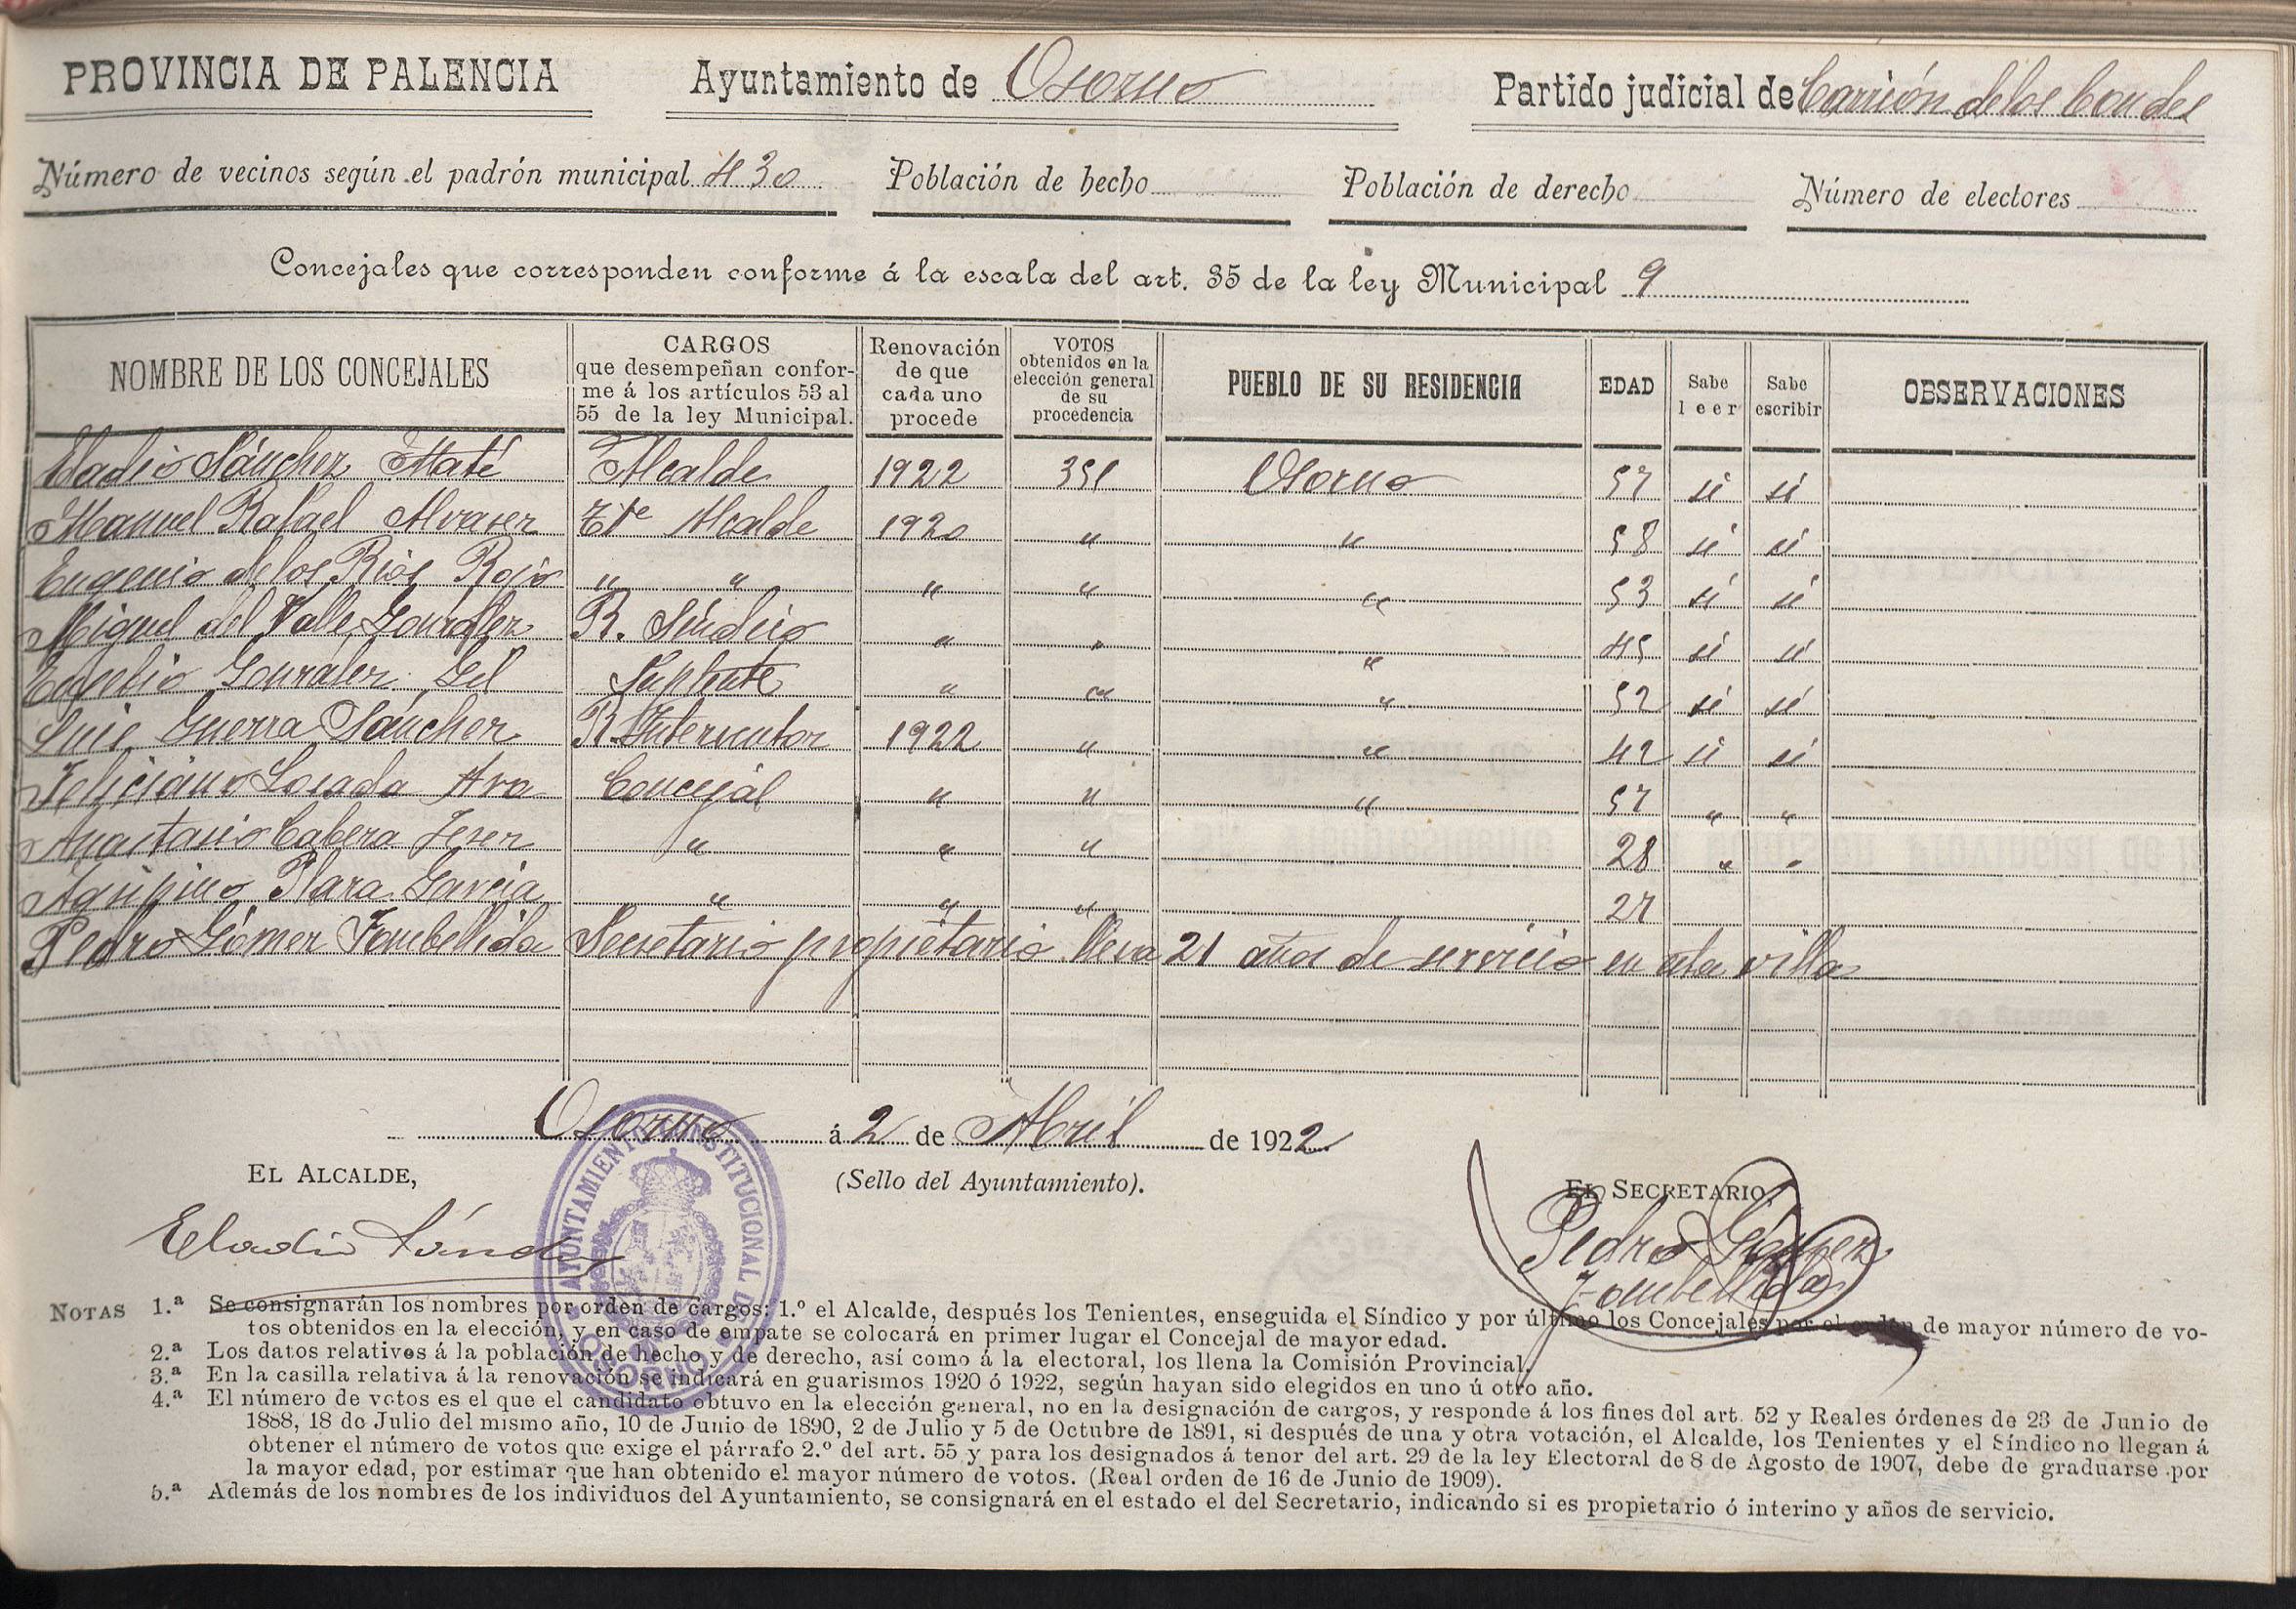 PROVINCIA DE PALENCIA Ayuntamiento de Osorno Partido judicial de Carrión de los Condes
Número de vecinos según el padrón municipal 430 Población de hecho Población de derecho Número de electores
Concejales que corresponden conforme á la escala del art. 35 de la ley Municipal 9
NOMBRE DE LOS CONCEJALES
CARGOS
que desempeñan confor-
me á los artículos 53 al
55 de la ley Municipal.
Renovación
de que
cada uno
procede
VOTOS
obtenidos en la
elección general
de su
procedencia
PUEBLO DE SU RESIDENCIA
EDAD
Sabe
leer
Sabe
escribir
OBSERVACIONES
Eladio Sánchez Maté Alcalde 1922 351 Osorno 57 si si
Manuel Rafael Alvarez Tte Alcalde 1920 " " 58 si si
Eugenio de los Rios Rojo " " " " " 53 si si
Miguel del Valle González R. Síndico " " " 45 si si
Eusebio González Gil Suplente " " " 52 si si
Luis Guerra Sánchez R. Interventor 1922 " " 42 si si
Feliciano Losada Ara Concejal " " " 57 " "
Anastasio Cabeza " " " 28 " "
Agripino Plaza García " " " 27
Pedro Gómez Fombellida Secretario propietario lleva 21 años de servicio en esta villa
Osorno á 2 de Abril de 1922
EL ALCALDE, (Sello del Ayuntamiento). EL SECRETARIO,
Eladio Sánchez
Pedro Gómez
Fombellida
AYUNTAMIENTO CONSTITUCIONAL DE OSORNO
NOTAS 1.ª Se consignarán los nombres por orden de cargos: 1.º el Alcalde, después los Tenientes, enseguida el Síndico y por último los Concejales por el orden de mayor número de vo-
tos obtenidos en la elección, y en caso de empate se colocará en primer lugar el Concejal de mayor edad.
2.ª Los datos relativos á la población de hecho y de derecho, así como á la electoral, los llena la Comisión Provincial.
3.ª En la casilla relativa á la renovación se indicará en guarismos 1920 ó 1922, según hayan sido elegidos en uno ú otro año.
4.ª El número de votos es el que el candidato obtuvo en la elección general, no en la designación de cargos, y responde á los fines del art. 52 y Reales órdenes de 23 de Junio de
1888, 18 de Julio del mismo año, 10 de Junio de 1890, 2 de Julio y 5 de Octubre de 1891, si después de una y otra votación, el Alcalde, los Tenientes y el Síndico no llegan á
obtener el número de votos que exige el párrafo 2.º del art. 55 y para los designados á tenor del art. 29 de la ley Electoral de 8 de Agosto de 1907, debe de graduarse por
la mayor edad, por estimar que han obtenido el mayor número de votos. (Real orden de 16 de Junio de 1909).
5.ª Además de los nombres de los individuos del Ayuntamiento, se consignará en el estado el del Secretario, indicando si es propietario ó interino y años de servicio.